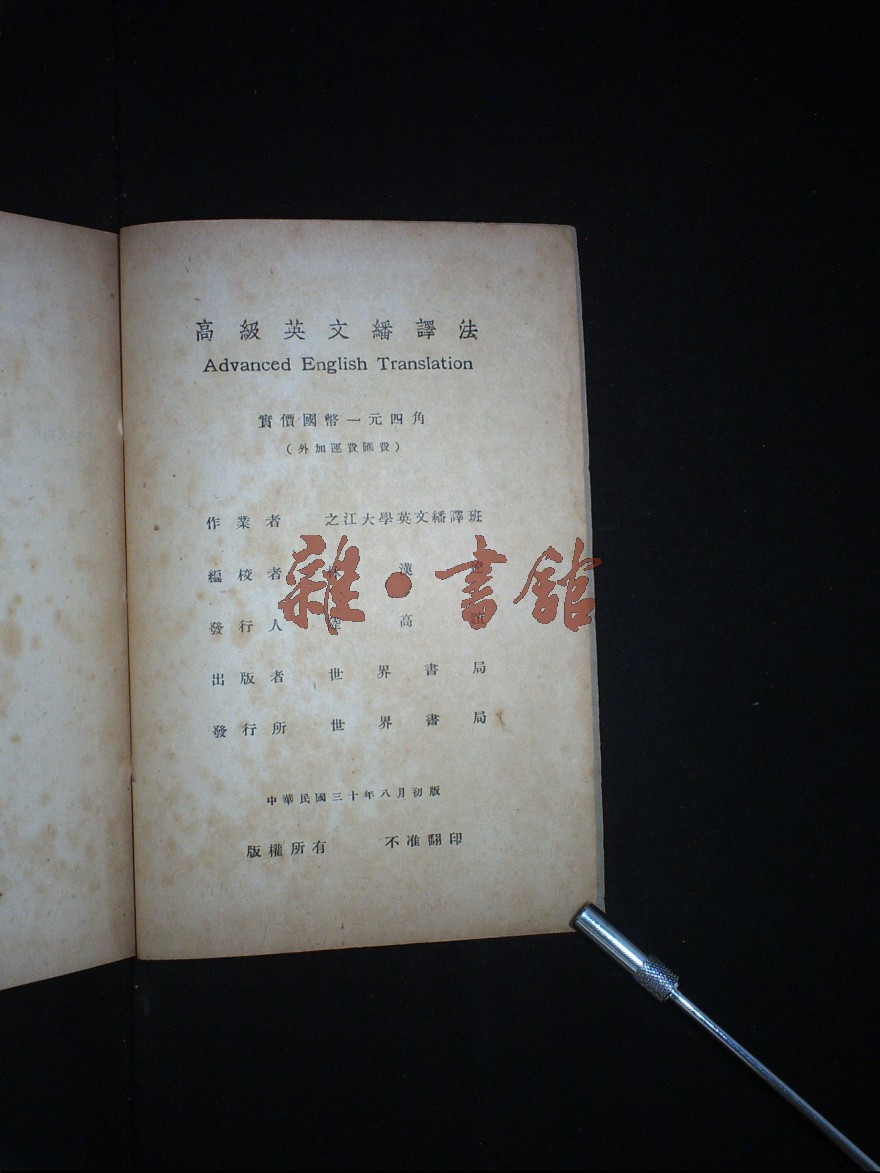 高級英文繙譯法
Advanced English Translation
實價國幣一元四角
(外加運費匯費)
作業者 之江大學英文繙譯班
編校者 林漢
發行人 陸高誼
出版者 世界書局
發行所 世界書局
中華民國三十年八月初版
版權所有 不准翻印
雜·書館